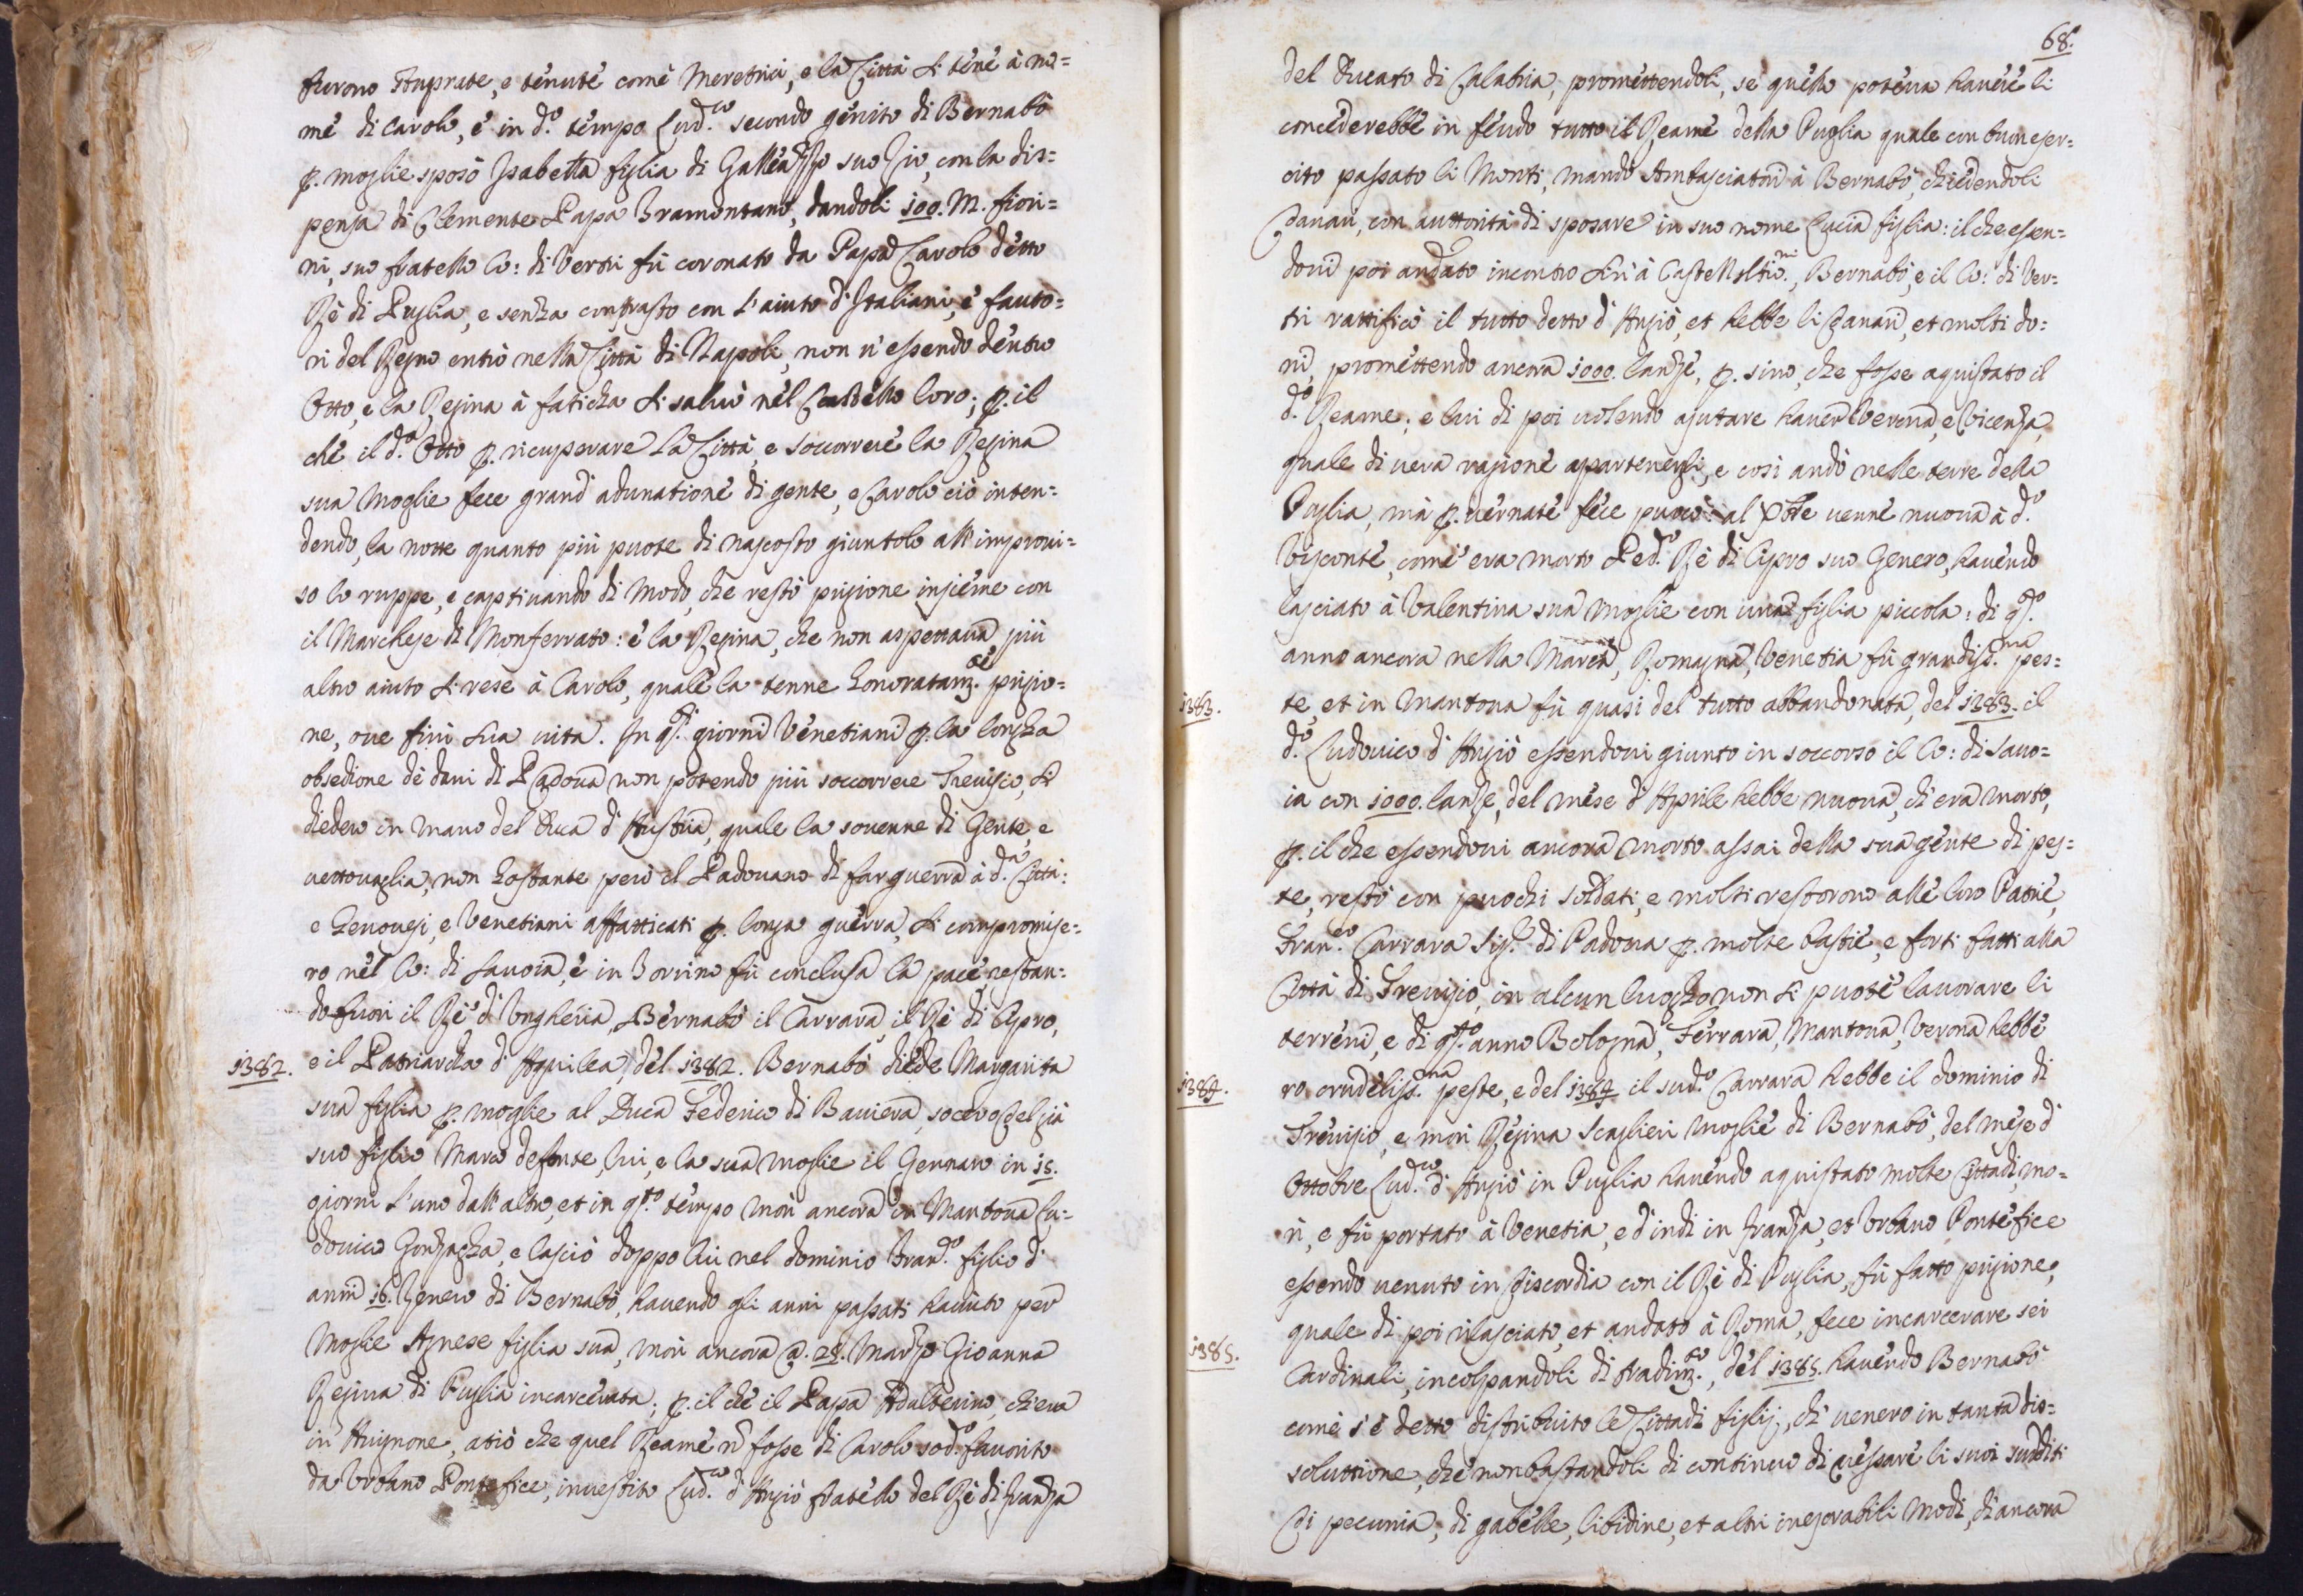 furono stuprate, e tenute come Meretrici, e la Città si tène à no=
me di Carolo, è in d.º tempo Lud.co secondo genito di Bernabò
p. moglie sposò Isabetta figlia di Galleazzo suo Zio, con la dis=
pensa di Clemente Papa Tramontano, dandoli 100. M. fiori=
ni, suo fratello Co: di Vertù fù coronato da Papa Carolo detto
Rè di Puglia, e senza contrasto con l'aiuto d'Italiani, è fauto=
ri del Regno entrò nella Città di Napoli, non u'essendo dentro
Otto, e la Regina à faticha si salvò nel Castello loro; p. il
che il d.º Otto p. ricuperare la Città, e soccorrere la Regina
sua Moglie fece grand'adunatione di gente, e Carolo ciò inten=
dendo, la notte quanto più puote di nascosto giuntolo all'improui=
so lo ruppe, e captiuando di modo, che restò prigione insieme con
il Marchese di Monferrato: è la Regina, che non aspettaua più
altro aiuto si rese à Carolo, quale la tenne honoratam.te prigio=
ne, oue finì sua uita. In q.ti giorni Venetiani p. la longha
obsedione dè dani di Padoua non potendo più soccorrere Treuiso, si
diedero in mano del Duca d'Austria, quale la souenne di Gente, e
uettouaglia, non hostante però il Padouano di far guerra à d.a Città:
e Genouesi, e Venetiani affatticati p. longa guerra, si compromise=
ro nel Co: di Sauoia, è in Torrino fù conclusa la pace, restan=
do fuori il Rè d'Ungheria, Bernabò il Carrara, il Rè di Cipro,
1382. e il Patriarcha d'Aquilea, del 1382. Bernabò diede Margarita
sua figlia p. moglie al Duca Federico di Bauiera, socero del già
suo figlio Marco defonte, lui, e la sua moglie il Gennaro in 15.
giorni l'uno dall'altro, et in q.to tempo morì ancora in Mantoua Lu=
douico Gonzagha, e lasciò doppo lui nel dominio Fran.co figlio d'
anni 16. Genero di Bernabò, hauendo gli anni passati hauuto per
Moglie Agnese figlia sua, morì ancora a. 28. Marzo Gioanna
Regina di Puglia incarcerata; p. il che il Papa Adulterino, ch'era
in Auignone, atiò che quel Reame nõ fosse di Carolo sod.º fauorito
da Urbano Pontefice, inuestito Lud.co d'Angiò fratello del Rè di Franza
68.
del Ducato di Calabria, promettendoli, se quello poteua hauere li
concederebbe in feudo tutto il Reame della Puglia quale con buon eser=
cito passato li Monti, mandò Ambasciatori à Bernabò, chiedendoli
Danari, con auttorità di sposare in suo nome Lucia figlia: il che essen=
doui poi andato incontro sin'à Castell, Bernabò, e il Co: di Ver=
tù rattificò il tutto detto d'Angiò, et hebbe li Danari, et molti do=
ni, promettendo ancora 1000. lanze, p. sino, che fosse aquistato il
d.º Reame; e lui di poi uolendo ajutare hauer Verona, e Vicenza,
quale di uera ragione apartenersi, e così andò nelle terre della
Puglia, mà p. uernate fece puoco: al uenne nuoua à d.º
Visconte, come era morto Ped.º Rè di Cipro suo Genero, hauendo
lasciato à Valentina sua moglie con una figlia piccola: di q.to
anno ancora nella Marca, Romagna, Venetia fù grandiss.ma pes=
1383. te, et in Mantoua fù quasi del tutto abbandonata, del 1383. il
d.º Ludouico d'Angiò essendoui giunto in soccorso il Co: di Sauo=
ia con 1000. lanze, del mese d'Aprile hebbe nuoua, ch'era morto,
p. il che essendoui ancora morto assai della sua gente di pes=
te, restò con puochi soldati, e molti restorono alle loro Patrie,
Fran.co Carrara Sig.r di Padoua p. molte bastie, e forti fatti alla
Città di Treuisio, in alcun luogho non si puote lauorare li
terreni, e di q.to anno Bologna, Ferrara, Mantoua, Verona hebbe
1384. ro crudeliss.ma peste, e del 1384 il sud.º Carrara hebbe il dominio di
Treuisio, e morì Regina Scaglieri moglie di Bernabò, del mese d'
Ottobre Lud.co d'Angiò in Puglia hauendo aquistato molte Cittadi, mo=
rì, e fù portato à Venetia, e d'indi in Franza, et Urbano Pontefice
essendo uenuto in discordia con il Rè di Puglia, fù fatto prigione,
quale di poi rilasciato, et andato à Roma, fece incarcerare sei
1385. Cardinali, incolpandoli di tradim.to, del 1385. hauendo Bernabò
come s'è detto distribuito le Cittadi figlij, ch'uenero in tanta dis=
soluttione, che non bastandoli di continuo di uessare li suoi sudditi
di pecunia, di gabelle, libidine, et altri inesorabili modi, ch'ancora